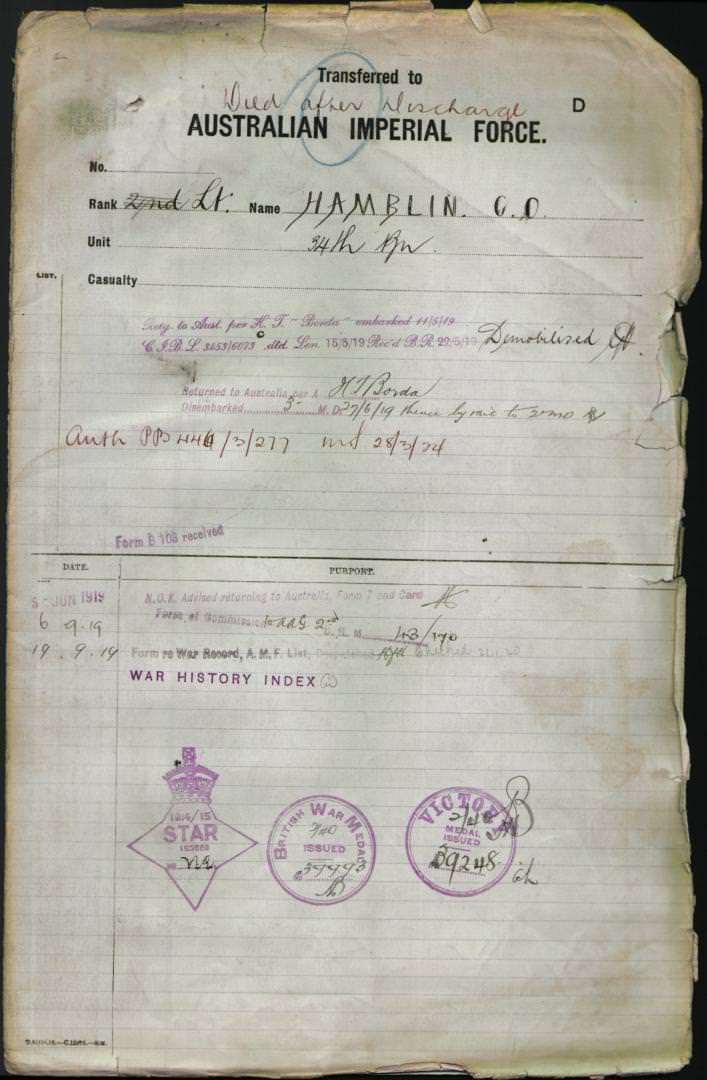 Transferred to
Died after Discharge D
AUSTRALIAN IMPERIAL FORCE.
No.
Rank 2nd Lt. Name HAMBLIN. C.O.
Unit 34th Bn.
LIST.
Casualty
Retg to Aust. per H. T. "Borda" embarked 11/5/19
C.I.B.L. 3453/6073 dtd. Lon. 15/5/19 Rec'd B.R. 29/5/19 Demobilised
Returned to Australia per H T Borda
Disembarked 3 M.D. 27/6/19 thence by rail to 2nd MD
Auth PP 446/3/277 28/3/24
Form B 103 received
DATE. PURPORT.
5 - JUN 1919 N.O.K. Advised returning to Australia, Form 7 and Card
6 9.19 Form of Commission to AAG 2nd 43/170
19.9.19 Form re War Record, A.M.F. List, Despatched Checked
WAR HISTORY INDEX
1914/15
STAR
ISSUED
NO
BRITISH WAR MEDAL
ISSUED
VICTORY
MEDAL
ISSUED
39248